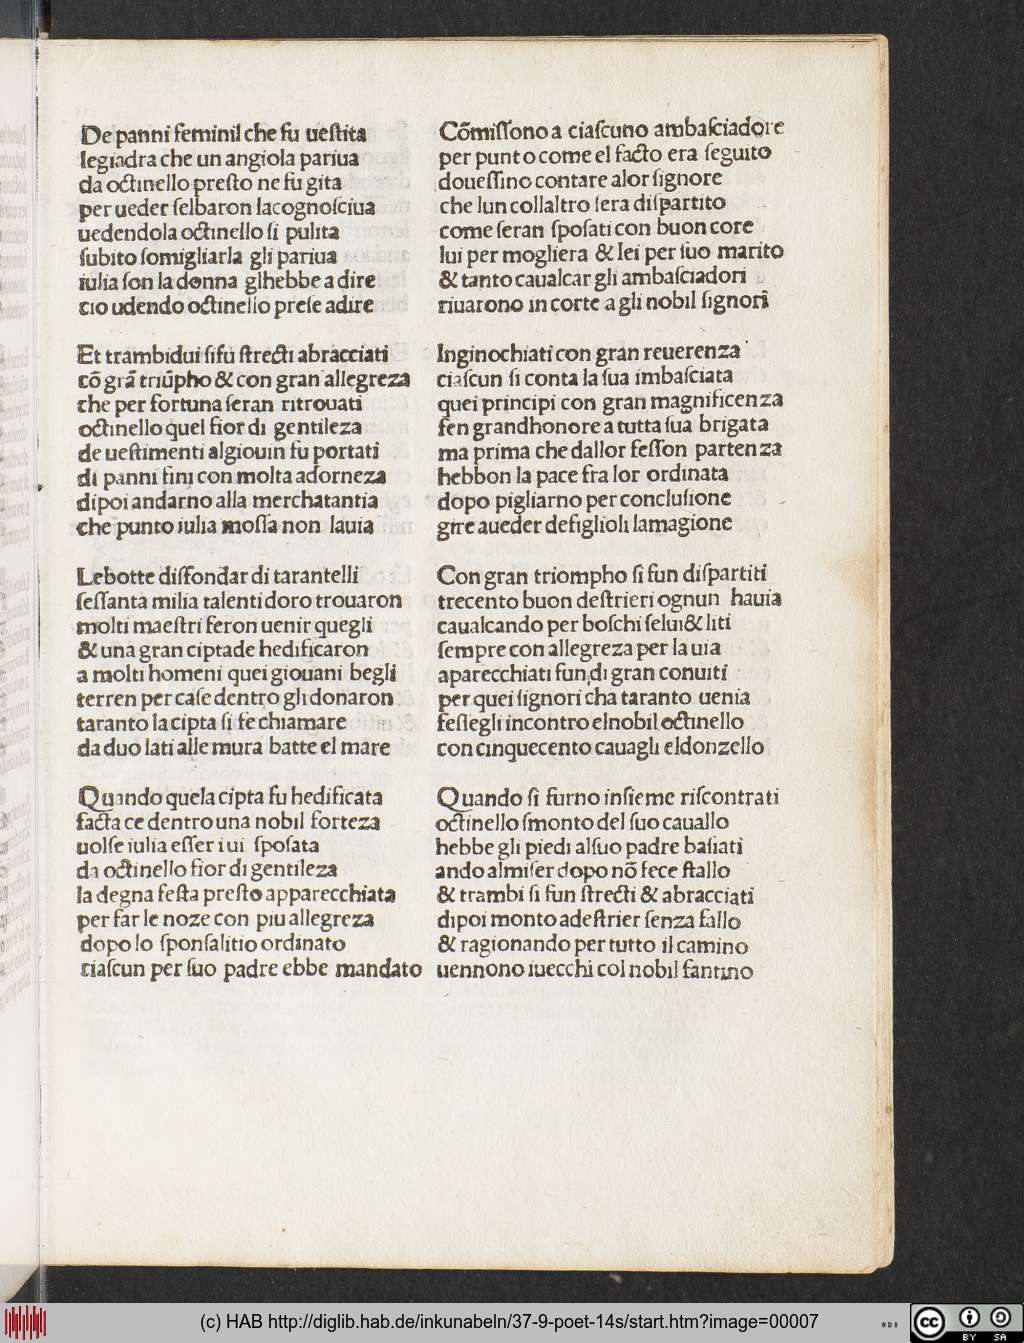 De panni feminil che fu ueſtita
legiadra che un angiola pariua
da octinello preſto ne fu gita
per ueder ſelbaron lacognoſciua
uedendola octinello ſi pulita
ſubito ſomigliarla gli pariua
iulia ſon la donna glhebbe a dire
cio udendo octinello preſe adire

Et trambidui ſifu ſtrecti abracciati
cõ grã triũpho & con gran allegreza
che per fortuna ſeran ritrouati
octinello quel fior di gentileza
de ueſtimenti algiouin fu portati
di panni fini con molta adorneza
dipoi andarno alla merchatantia
che punto iulia moſſa non lauia

Lebotte diſfondar di tarantelli
ſeſſanta milia talenti doro trouaron
molti maeſtri feron uenir quegli
& una gran ciptade hedificaron
a molti homeni quei giouani begli
terren per caſe dentro gli donaron
taranto la cipta ſi fe chiamare
da duo lati alle mura batte el mare

Quando quela cipta fu hedificata
facta ce dentro una nobil forteza
uolſe iulia eſſer iui ſpoſata
da octinello fior di gentileza
la degna feſta preſto apparecchiata
per far le noze con piu allegreza
dopo lo ſponſalitio ordinato
ciaſcun per ſuo padre ebbe mandato

Cõmiſſono a ciaſcuno ambaſciadore
per punto come el facto era ſeguito
doueſſino contare alor ſignore
che lun collaltro ſera diſpartito
come ſeran ſpoſati con buon core
lui per mogliera & lei per ſuo marito
& tanto caualcar gli ambaſciadori
riuarono in corte a gli nobil ſignori

Inginochiati con gran reuerenza
ciaſcun ſi conta la ſua imbaſciata
quei principi con gran magnificenza
fen grandhonore a tutta ſua brigata
ma prima che dallor feſſon partenza
hebbon la pace fra lor ordinata
dopo pigliarno per concluſione
gire aueder defiglioli lamagione

Con gran triompho ſi fun diſpartiti
trecento buon deſtrieri ognun hauia
caualcando per boſchi ſelui & liti
ſempre con allegreza per la uia
aparecchiati fun di gran conuiti
per quei ſignori cha taranto uenia
feſſegli incontro elnobil octinello
con cinquecento cauagli eldonzello

Quando ſi furno inſieme riſcontrati
octinello ſmonto del ſuo cauallo
hebbe gli piedi alſuo padre baſiati
ando almiſer dopo nõ fece ſtallo
& trambi ſi fun ſtrecti & abracciati
dipoi monto adeſtrier ſenza fallo
& ragionando per tutto il camino
uennono iuecchi col nobil fantino

(c) HAB http://diglib.hab.de/inkunabeln/37-9-poet-14s/start.htm?image=00007
cc BY SA